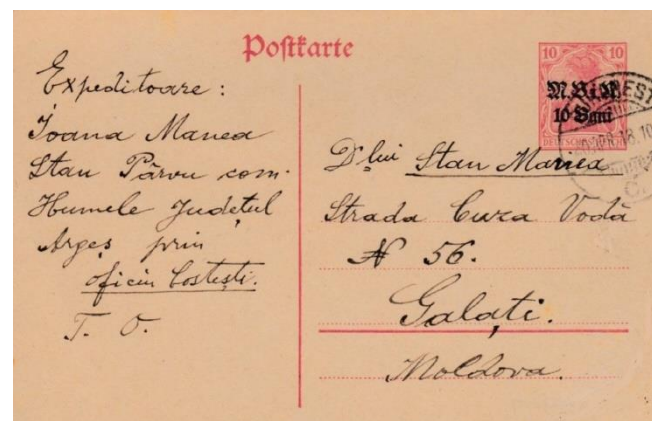 Postkarte
Expeditoare:
Ioana Manea
Stan Pârvu com.
Humele Județul
Argeș prin
oficiu Costești.
T. O.
10 10
M.V.i.R.
10 Bani
DEUTSCHES REICH
D-lui Stan Manea
Strada Cuza Vodă
N 56.
Galați.
Moldova.